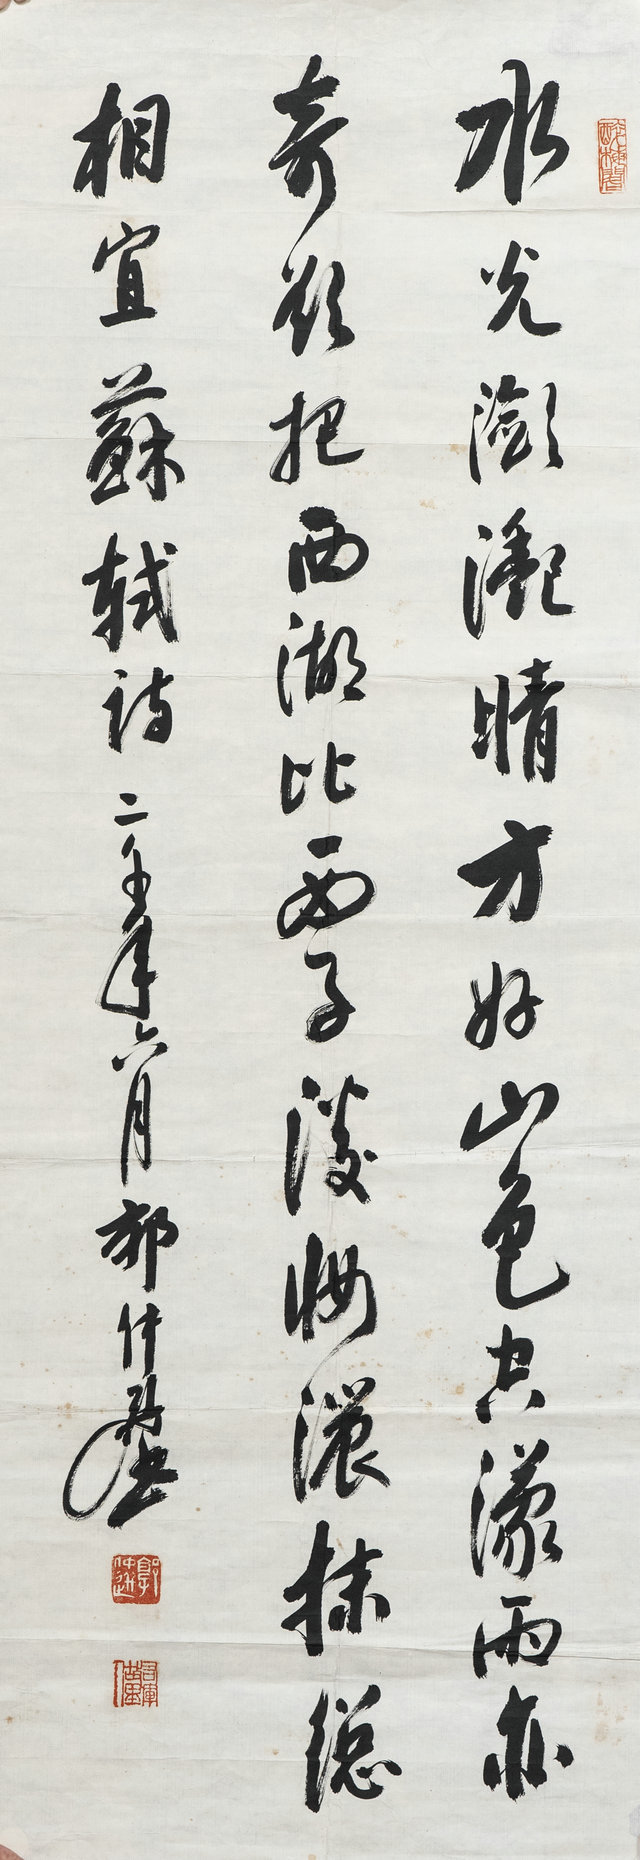 水光瀲灩晴方好山色空濛雨亦
奇欲把西湖比西子淡妝濃抹總
相宜蘇軾詩二千年六月郭仲選
郭仲選